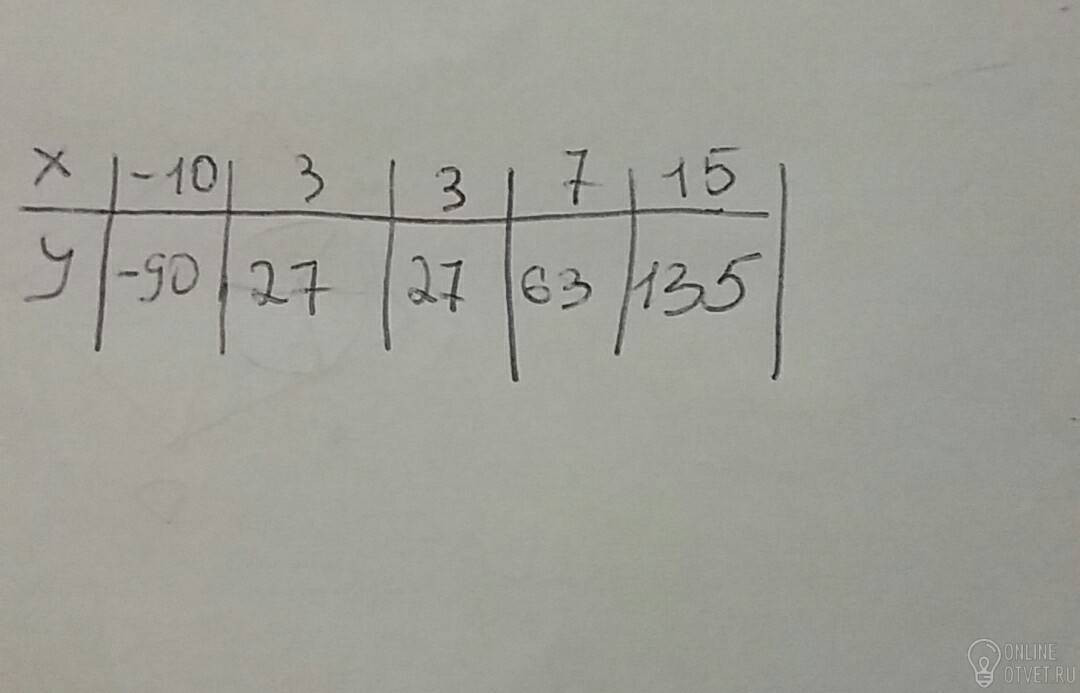 x | -10 | 3 | 3 | 7 | 15 |
y | -90 | 27 | 27 | 63 | 135 |
ONLINE
OTVET.RU